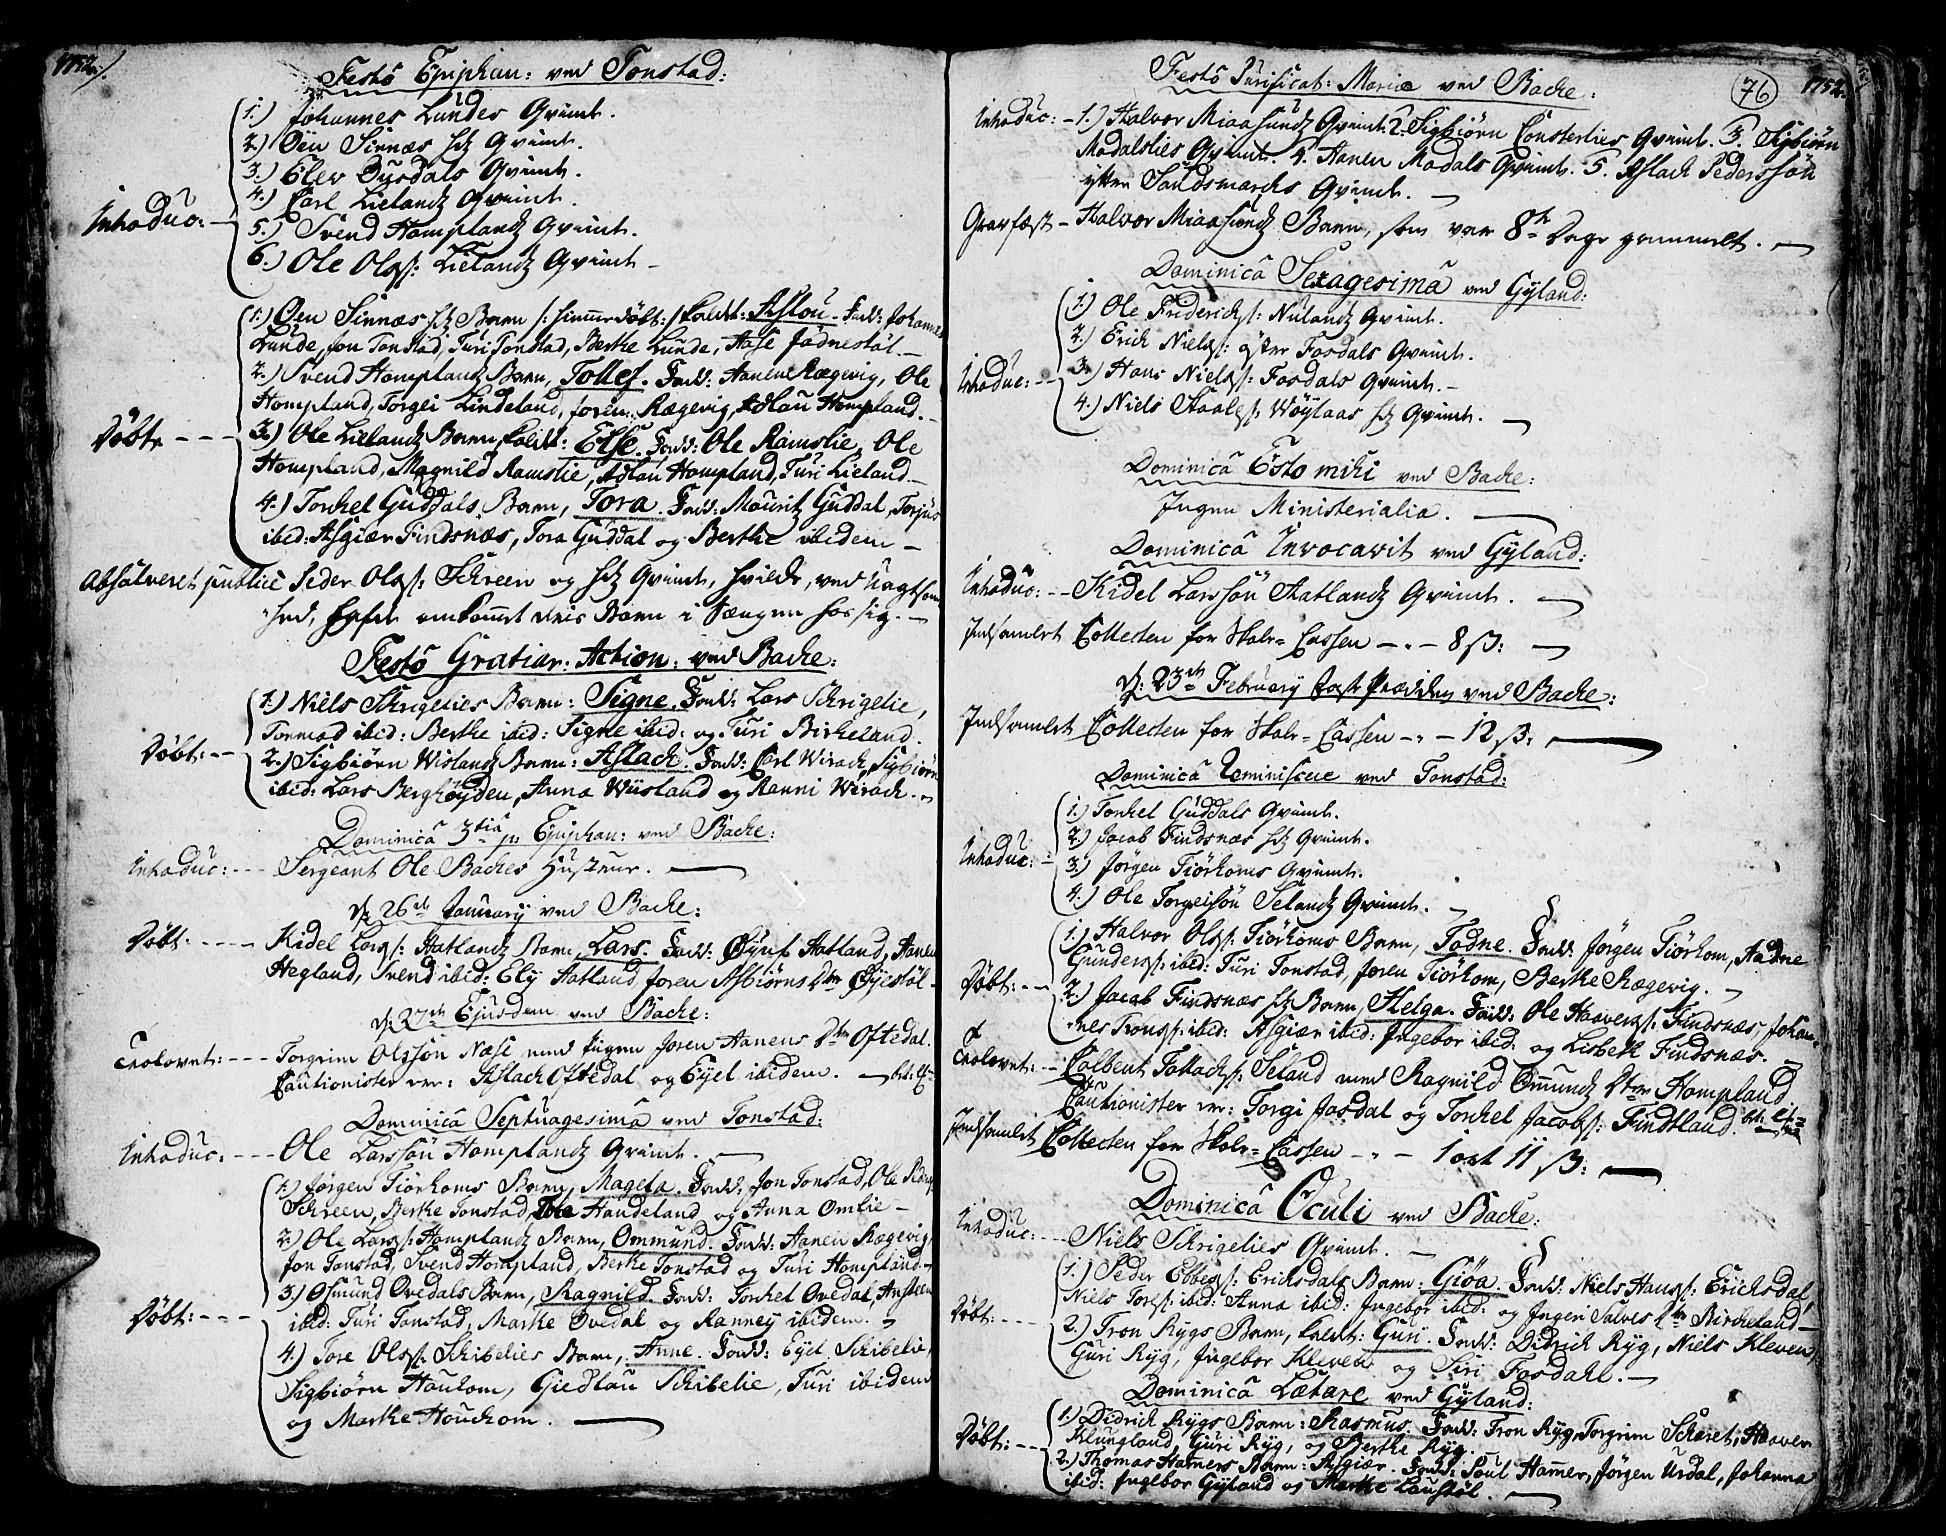 1752.
Festo Epiphan: ved Tonstad:
1.) Johannes Lundes Qvinde.
2.) Öen Sinnæs Hs Qvinde.
3.) Elev Dusdals Qvinde.
4.) Carl Lielands Qvinde.
Introduc:
5.) Svend Homplands Qvinde.
6.) Ole Ols: Lielands Qvinde
1.) Öen Sinnæs Hs Barn /: himmedöbt :/ kaldt: Aslou. Fadd: Johannes
Lunde, Jon Tonstad, Turi Tonstad, Berthe Lunde, Aase Jödnestöl.
2.) Svend Homplands Barn, Tollef. Fadd: Hanen Rægevig, Ole
Hompland, Torgei Lindeland, Joren Rægevig, Adlau Hompland.
Döbt
3.) Ole Lielands Barn, kaldt: Else. Fadd: Ole Ramslie, Ole
Hompland, Magnild Ramslie, Adlau Hompland, Turi Lieland
4.) Tonkel Guddals Barn, Tora. Fadd: Mouritz Guddal, Torjus
ibid: Asgiær Findsnæs, Tora Guddal og Berthe ibidem
Absolveret publicè Peder Ols: Schreen og Hs Qvinde, hvilde, ved Uagtsom
hed, hafde omkommet deris Barn i Sængen hos sig.
Festo Gratiar: Action: ved Backe:
1.) Niels Schrigelies Barn: Signe. Fadd: Lars Schrigelie,
Tormod ibid: Berthe ibid: Signe ibid: og Turi Birkeland.
Döbt:
2.) Sigbiörn Wislands Barn: Aslach. Fadd: Carl Wirach, Sigbiörn
ibid: Lars Berghöyden, Anna Wiisland og Ranni Wirach.
Dominicâ 3tiâ p: Epiphan: ved Backe:
Introduc: Sergeant Ole Backes Hustrue.
d: 26de January ved Backe:
Döbt: Kidel Lars: Hatlands Barn, Lars. Fadd: Öyuf Hatland, Hanen
Hegland, Svend ibid: Ely Hatland, Joren Asbiörns Dtr Öyestöl
d: 27de Ejusdem ved Backe:
Trolovet: Torgrim Olssön Næse med Pigen Joren Hanens Dtr Oftedal.
Cautionister ere: Aslach Oftedal og Eyel ibidem.
Dominicâ Septuagesimâ ved Tonstad:
Introduc: Ole Larssön Homplands Qvinde.
1.) Jörgen Tiörhoms Barn, Mageta. Fadd: Jon Tonstad, Ole
Schreen, Berthe Tonstad, Haudeland og Anna Omlie
2.) Ole Lars: Homplands Barn, Ommund. Fadd: Hanen Rægevig,
Jon Tonstad, Svend Hompland, Berthe Tonstad og Turi Hompland
3.) Osmund Ovedals Barn, Ragnild. Fadd: Tonkel Ovedal, Ansteen
Döbt:
ibid: Turi Tonstad, Marthe Ovedal og Ranney ibidem.
4.) Tore Ols: Schibelies Barn, Anne. Fadd: Eyel Schibelie,
Sigbiörn Houkom, Giedlau Schibelie, Turi ibidem
og Marthe Houchom.
Festo Purificat: Mariæ ved Backe:
76
1752.
Introduc: 1.) Halvor Miaasunds Qvinde. 2. Sigbiörn Consterlies Qvinde. 3. Sigbiörn
Modalslies Qvinde. 4. Hanen Modals Qvinde. 5. Aslach Pederssön
ytter Sandsmarchs Qvinde.
Gravfæst Halvor Miaasunds Barn, som var 8te Dage gammelt.
Dominicâ Sexagesimâ ved Gyland:
1.) Ole Friderichs: Nulands Qvinde.
2.) Erich Niels: öster Fosdals Qvinde.
Introduc:
3.) Hans Niels: Fosdals Qvinde.
4.) Niels Staales: Wöylaas Hs Qvinde.
Dominicâ Estomihi ved Backe:
Ingen Ministerialia.
Dominicâ Invocavit ved Gyland:
Introduc: Kidel Larssön Hatlands Qvinde.
Indsamlet Collecten for Skole-Cassen 8 ß:
d: 23de February Fast Prædiken ved Backe:
Indsamlet Collecten for Skole-Cassen 12 ß:
Dominicâ Reminiscere ved Tonstad:
1.) Tonkel Guddals Qvinde.
2.) Jacob Findsnæs Hs Qvinde.
Introduc:
3.) Jörgen Tiörhoms Qvinde.
4.) Ole Torgeisön Selands Qvinde.
1.) Halvor Ols: Tiörhoms Barn, Todne. Fadd: Jörgen Tiörhom, Aadne
Gunders: ibid: Turi Tonstad, Joren Tiörhom, Berthe Rægevig.
Döbt:
2.) Jacob Findsnæs Hs Barn, Helga. Fadd: Ole Haavers: Findsnæs, Johan-
nes Trons: ibid: Asgiær ibid: Ingebor ibid: og Lisbeth Findsnæs.
Trolovet: Colbent Tallachs: Seland med Ragnild Ommunds Dtr Hompland
Cautionister ere: Torgi Josdal og Tonkel Jacobs: Findtland.
Indsamlet Collecten for Skole-Cassen 1 ort 11 ß:
Dominicâ Oculi ved Backe:
Introduc: Niels Schrigelies Qvinde.
1.) Peder Ebbes: Ericksdals Barn: Giöa. Fadd: Niels Hans: Ericksdal,
Niels Tores: ibid: Anna ibid: Ingebor ibid: og Ingeri Salves Dtr Bircheland
Döbt:
2.) Tron Rygs Barn, kaldt: Guri. Fadd: Didrich Ryg, Niels Kleven,
Guri Ryg, Ingebor Kleven og Siri Fosdahl.
Dominicâ Lætare ved Gyland:
1.) Didrich Rygs Barn: Rasmus. Fadd: Tron Ryg, Torgrim Skaret, Haaver
Döbt:
Klungland, Guri Ryg, og Berthe Ryg.
2.) Thomas Hamers Barn: Asgiær. Fadd: Poul Hamer, Jörgen Urdal, Johanna
ibid: Ingebor Gyland og Marthe Laustöl.